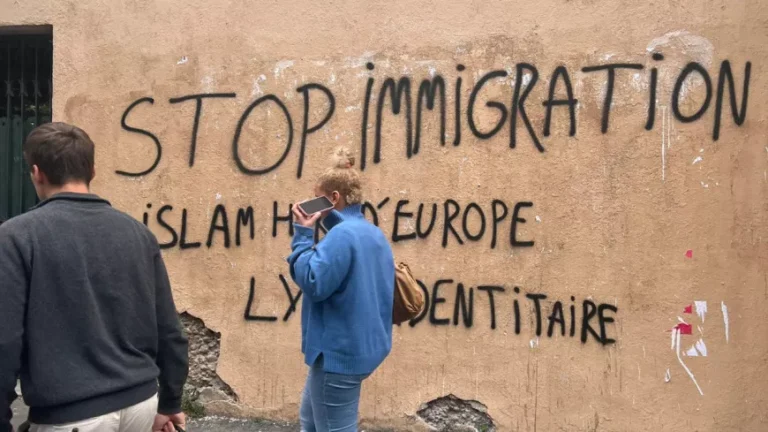 STOP immiGRATiON
iSLAM H D'EUROPE
LY IDENTiTAiRE